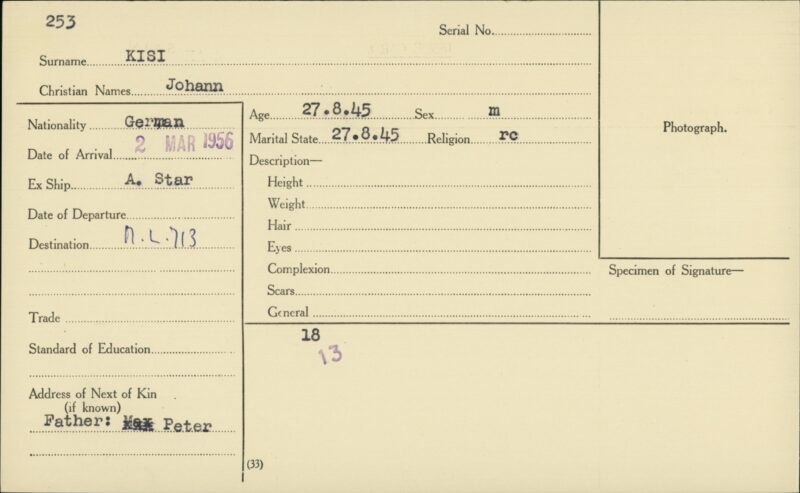 253
Serial No.
Surname KISI
Christian Names Johann
Nationality German
Date of Arrival 2 MAR 1956
Ex Ship A. Star
Date of Departure
Destination N.L.713
Trade
Standard of Education
Address of Next of Kin
(if known)
Father: Max Peter
Age 27.8.45 Sex m
Marital State 27.8.45 Religion rc
Description—
Height
Weight
Hair
Eyes
Complexion
Scars
General
18
13
(33)
Photograph.
Specimen of Signature—